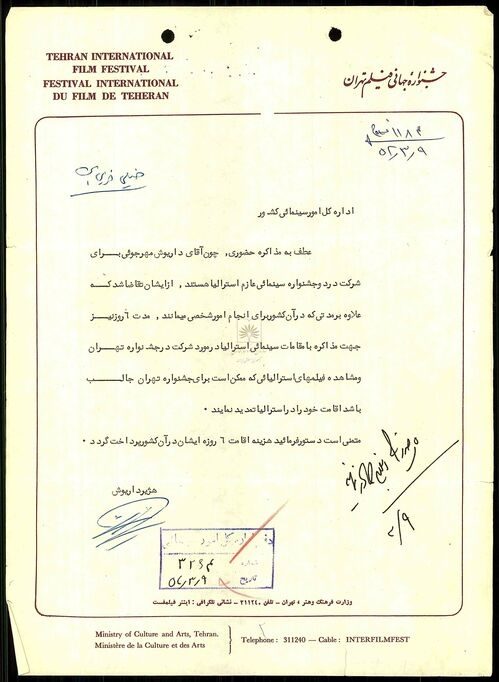 TEHRAN INTERNATIONAL
FILM FESTIVAL
FESTIVAL INTERNATIONAL
DU FILM DE TEHERAN
جشنواره جهانی فیلم تهران
۵۲/۳/۹
خیلی فوری
اداره کل امور سینمائی کشور
عطف به مذاکره حضوری، چون آقای داریوش مهرجوئی برای
شرکت در دو جشنواره سینمائی عازم استرالیا هستند، از ایشان تقاضا شد که
علاوه بر مدتی که در آن کشور برای انجام امور شخصی میمانند، مدت ۶ روز نیز
جهت مذاکره با مقامات سینمائی استرالیا در مورد شرکت در جشنواره تهران
و مشاهده فیلمهای استرالیائی که ممکن است برای جشنواره تهران جالب
باشد اقامت خود را در استرالیا تمدید نمایند ۰
متمنی است دستور فرمائید هزینه اقامت ۶ روزه ایشان در آن کشور پرداخت گردد ۰
هژیر داریوش
۳/۹
دفتر اداره کل امور سینمائی
شماره
تاریخ ۵۲/۳/۹
وزارت فرهنگ و هنر، تهران - تلفن ۳۱۱۲۴۰ - نشانی تلگرافی : اینتر فیلمفست
Ministry of Culture and Arts, Tehran.
Ministère de la Culture et des Arts
Telephone : 311240 — Cable : INTERFILMFEST